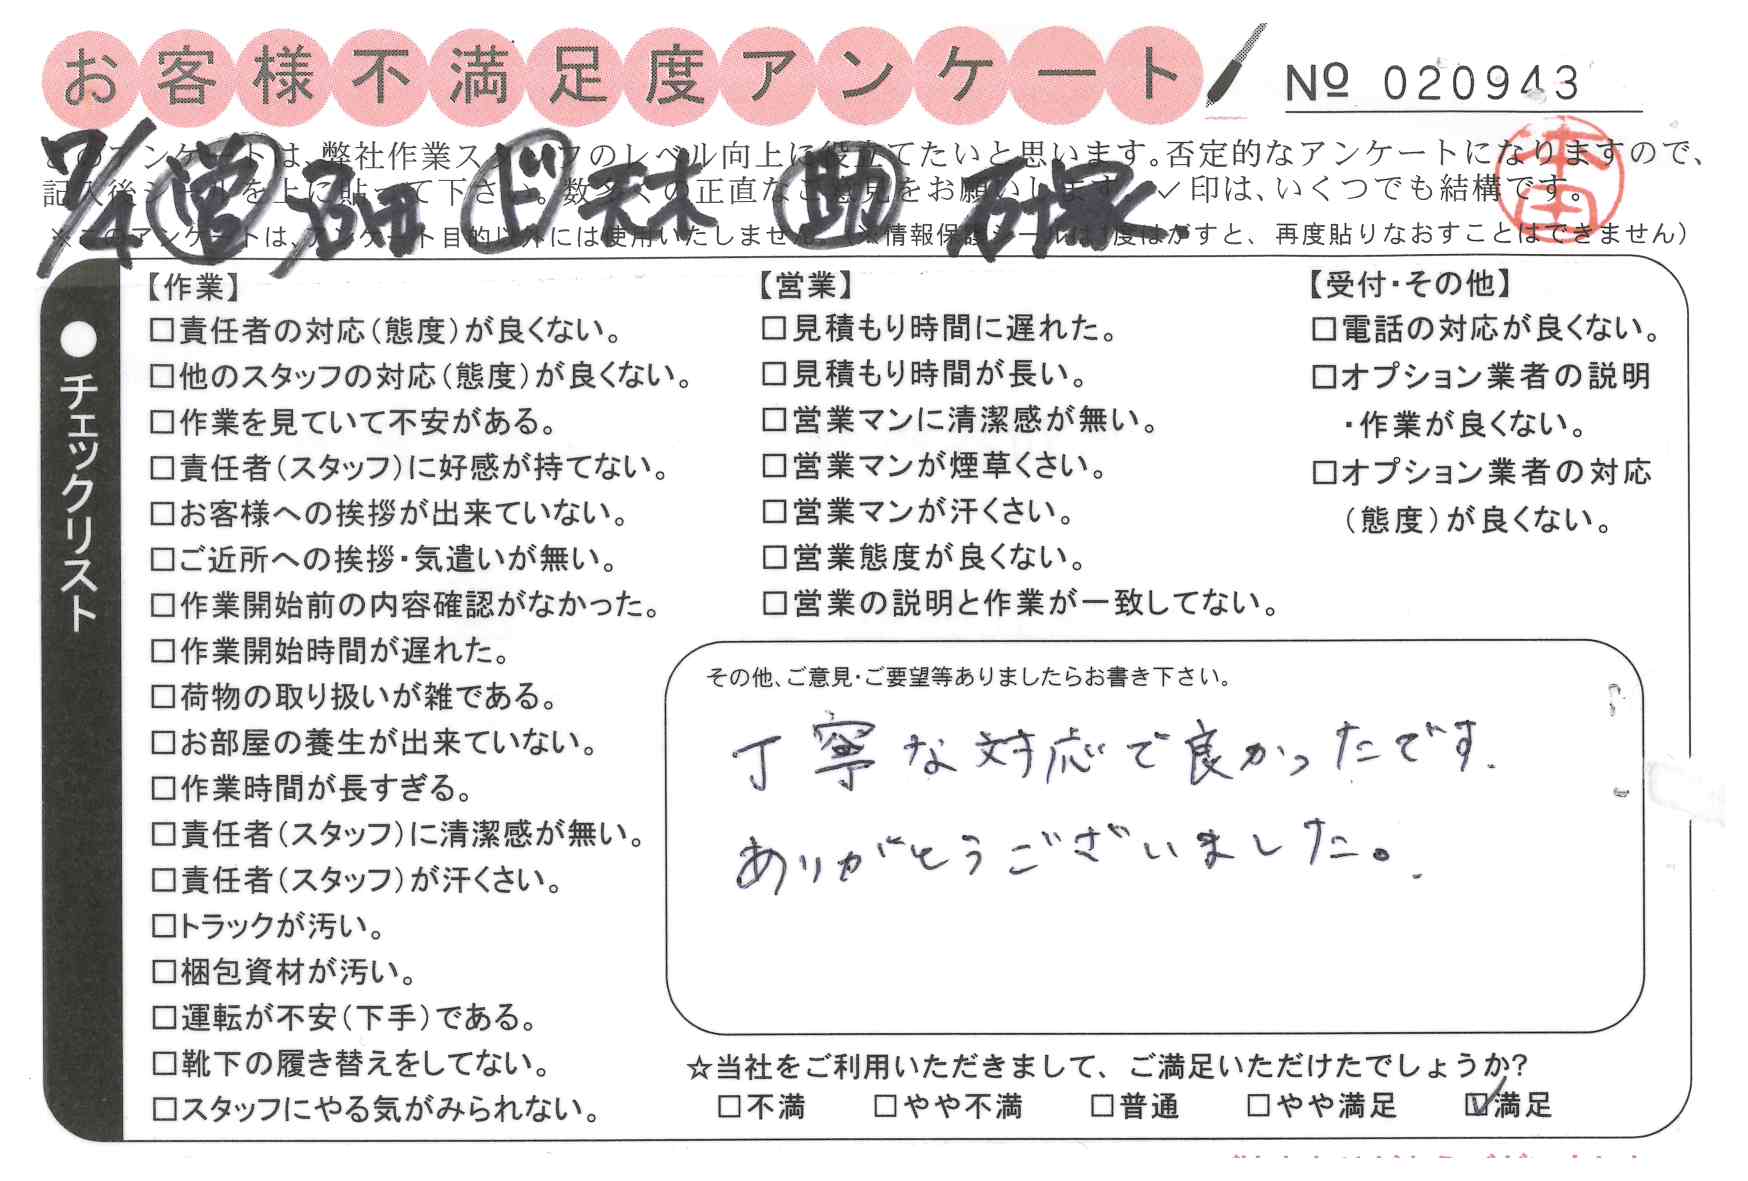 お客様不満足度アンケート
№ 020943
このアンケートは、弊社作業スタッフのレベル向上に役立てたいと思います。否定的なアンケートになりますので、
記入後シールを上に貼って下さい。数多くの正直なご意見をお願いします。✓印は、いくつでも結構です。
※このアンケートは、アンケート目的以外には使用いたしません。(※情報保護シールは1度はがすと、再度貼りなおすことはできません)
7/4 営 ド 天木 助 石塚
●チェックリスト
【作業】
□責任者の対応(態度)が良くない。
□他のスタッフの対応(態度)が良くない。
□作業を見ていて不安がある。
□責任者(スタッフ)に好感が持てない。
□お客様への挨拶が出来ていない。
□ご近所への挨拶・気遣いが無い。
□作業開始前の内容確認がなかった。
□作業開始時間が遅れた。
□荷物の取り扱いが雑である。
□お部屋の養生が出来ていない。
□作業時間が長すぎる。
□責任者(スタッフ)に清潔感が無い。
□責任者(スタッフ)が汗くさい。
□トラックが汚い。
□梱包資材が汚い。
□運転が不安(下手)である。
□靴下の履き替えをしてない。
□スタッフにやる気がみられない。
【営業】
□見積もり時間に遅れた。
□見積もり時間が長い。
□営業マンに清潔感が無い。
□営業マンが煙草くさい。
□営業マンが汗くさい。
□営業態度が良くない。
□営業の説明と作業が一致してない。
【受付・その他】
□電話の対応が良くない。
□オプション業者の説明
・作業が良くない。
□オプション業者の対応
(態度)が良くない。
その他、ご意見・ご要望等ありましたらお書き下さい。
丁寧な対応で良かったです.
ありがとうございました。
☆当社をご利用いただきまして、ご満足いただけたでしょうか?
□不満 □やや不満 □普通 □やや満足 ☑満足